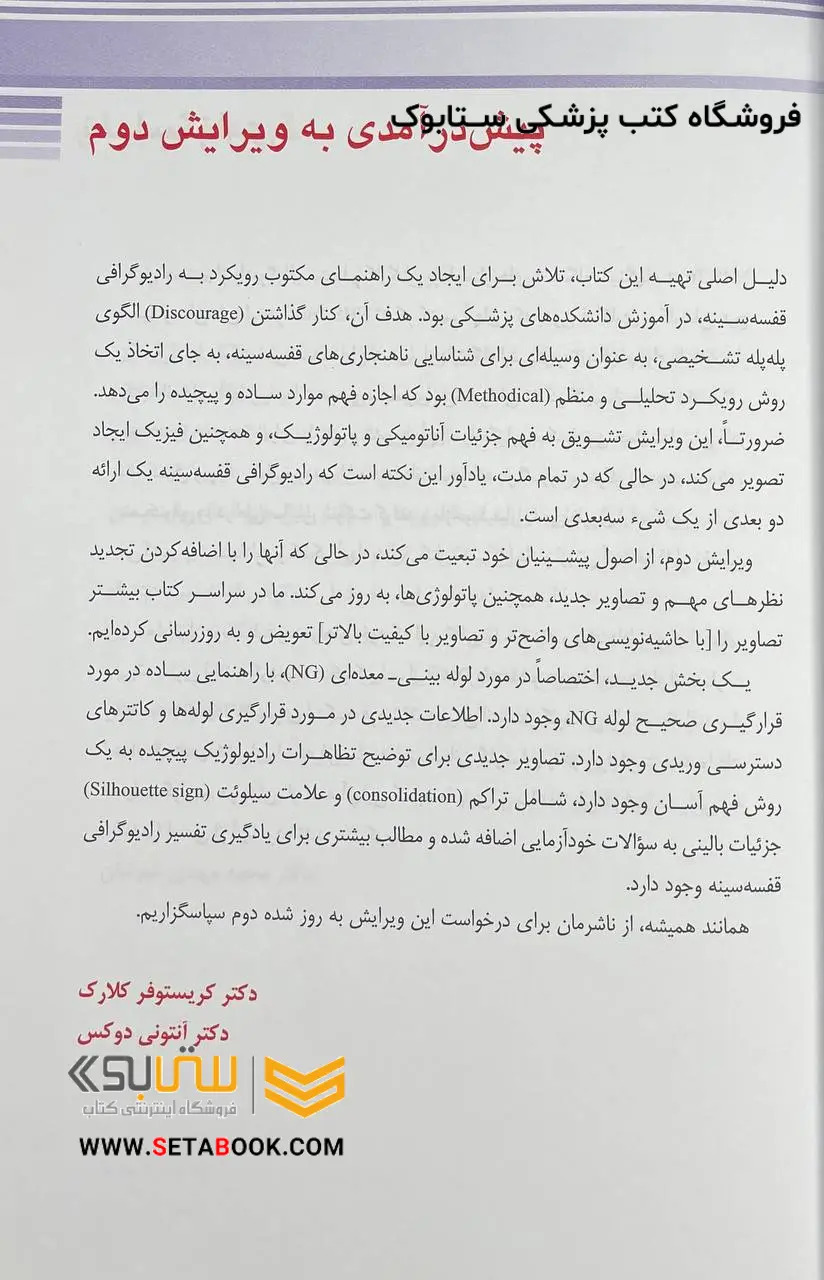 فروشگاه کتب پزشکی ستابوک
پیش‌درآمدی به ویرایش دوم
دلیل اصلی تهیه این کتاب، تلاش برای ایجاد یک راهنمای مکتوب رویکرد به رادیوگرافی
قفسه‌سینه، در آموزش دانشکده‌های پزشکی بود. هدف آن، کنار گذاشتن (Discourage) الگوی
پله‌پله تشخیصی، به عنوان وسیله‌ای برای شناسایی ناهنجاری‌های قفسه‌سینه، به جای اتخاذ یک
روش رویکرد تحلیلی و منظم (Methodical) بود که اجازه فهم موارد ساده و پیچیده را می‌دهد.
ضرورتاً، این ویرایش تشویق به فهم جزئیات آناتومیکی و پاتولوژیک، و همچنین فیزیک ایجاد
تصویر می‌کند، در حالی که در تمام مدت، یادآور این نکته است که رادیوگرافی قفسه‌سینه یک ارائه
دو بعدی از یک شیء سه‌بعدی است.
ویرایش دوم، از اصول پیشینیان خود تبعیت می‌کند، در حالی که آنها را با اضافه‌کردن تجدید
نظرهای مهم و تصاویر جدید، همچنین پاتولوژی‌ها، به روز می‌کند. ما در سراسر کتاب بیشتر
تصاویر را [با حاشیه‌نویسی‌های واضح‌تر و تصاویر با کیفیت بالاتر] تعویض و به روزرسانی کرده‌ایم.
یک بخش جدید، اختصاصاً در مورد لوله بینی-معده‌ای (NG)، با راهنمایی ساده در مورد
قرارگیری صحیح لوله NG، وجود دارد. اطلاعات جدیدی در مورد قرارگیری لوله‌ها و کاتترهای
دسترسی وریدی وجود دارد. تصاویر جدیدی برای توضیح تظاهرات رادیولوژیک پیچیده به یک
روش فهم آسان وجود دارد، شامل تراکم (consolidation) و علامت سیلوئت (Silhouette sign)
جزئیات بالینی به سؤالات خودآزمایی اضافه شده و مطالب بیشتری برای یادگیری تفسیر رادیوگرافی
قفسه‌سینه وجود دارد.
همانند همیشه، از ناشرمان برای درخواست این ویرایش به روز شده دوم سپاسگزاریم.
دکتر کریستوفر کلارک
دکتر آنتونی دوکس
ستابوک
فروشگاه اینترنتی کتاب
WWW.SETABOOK.COM